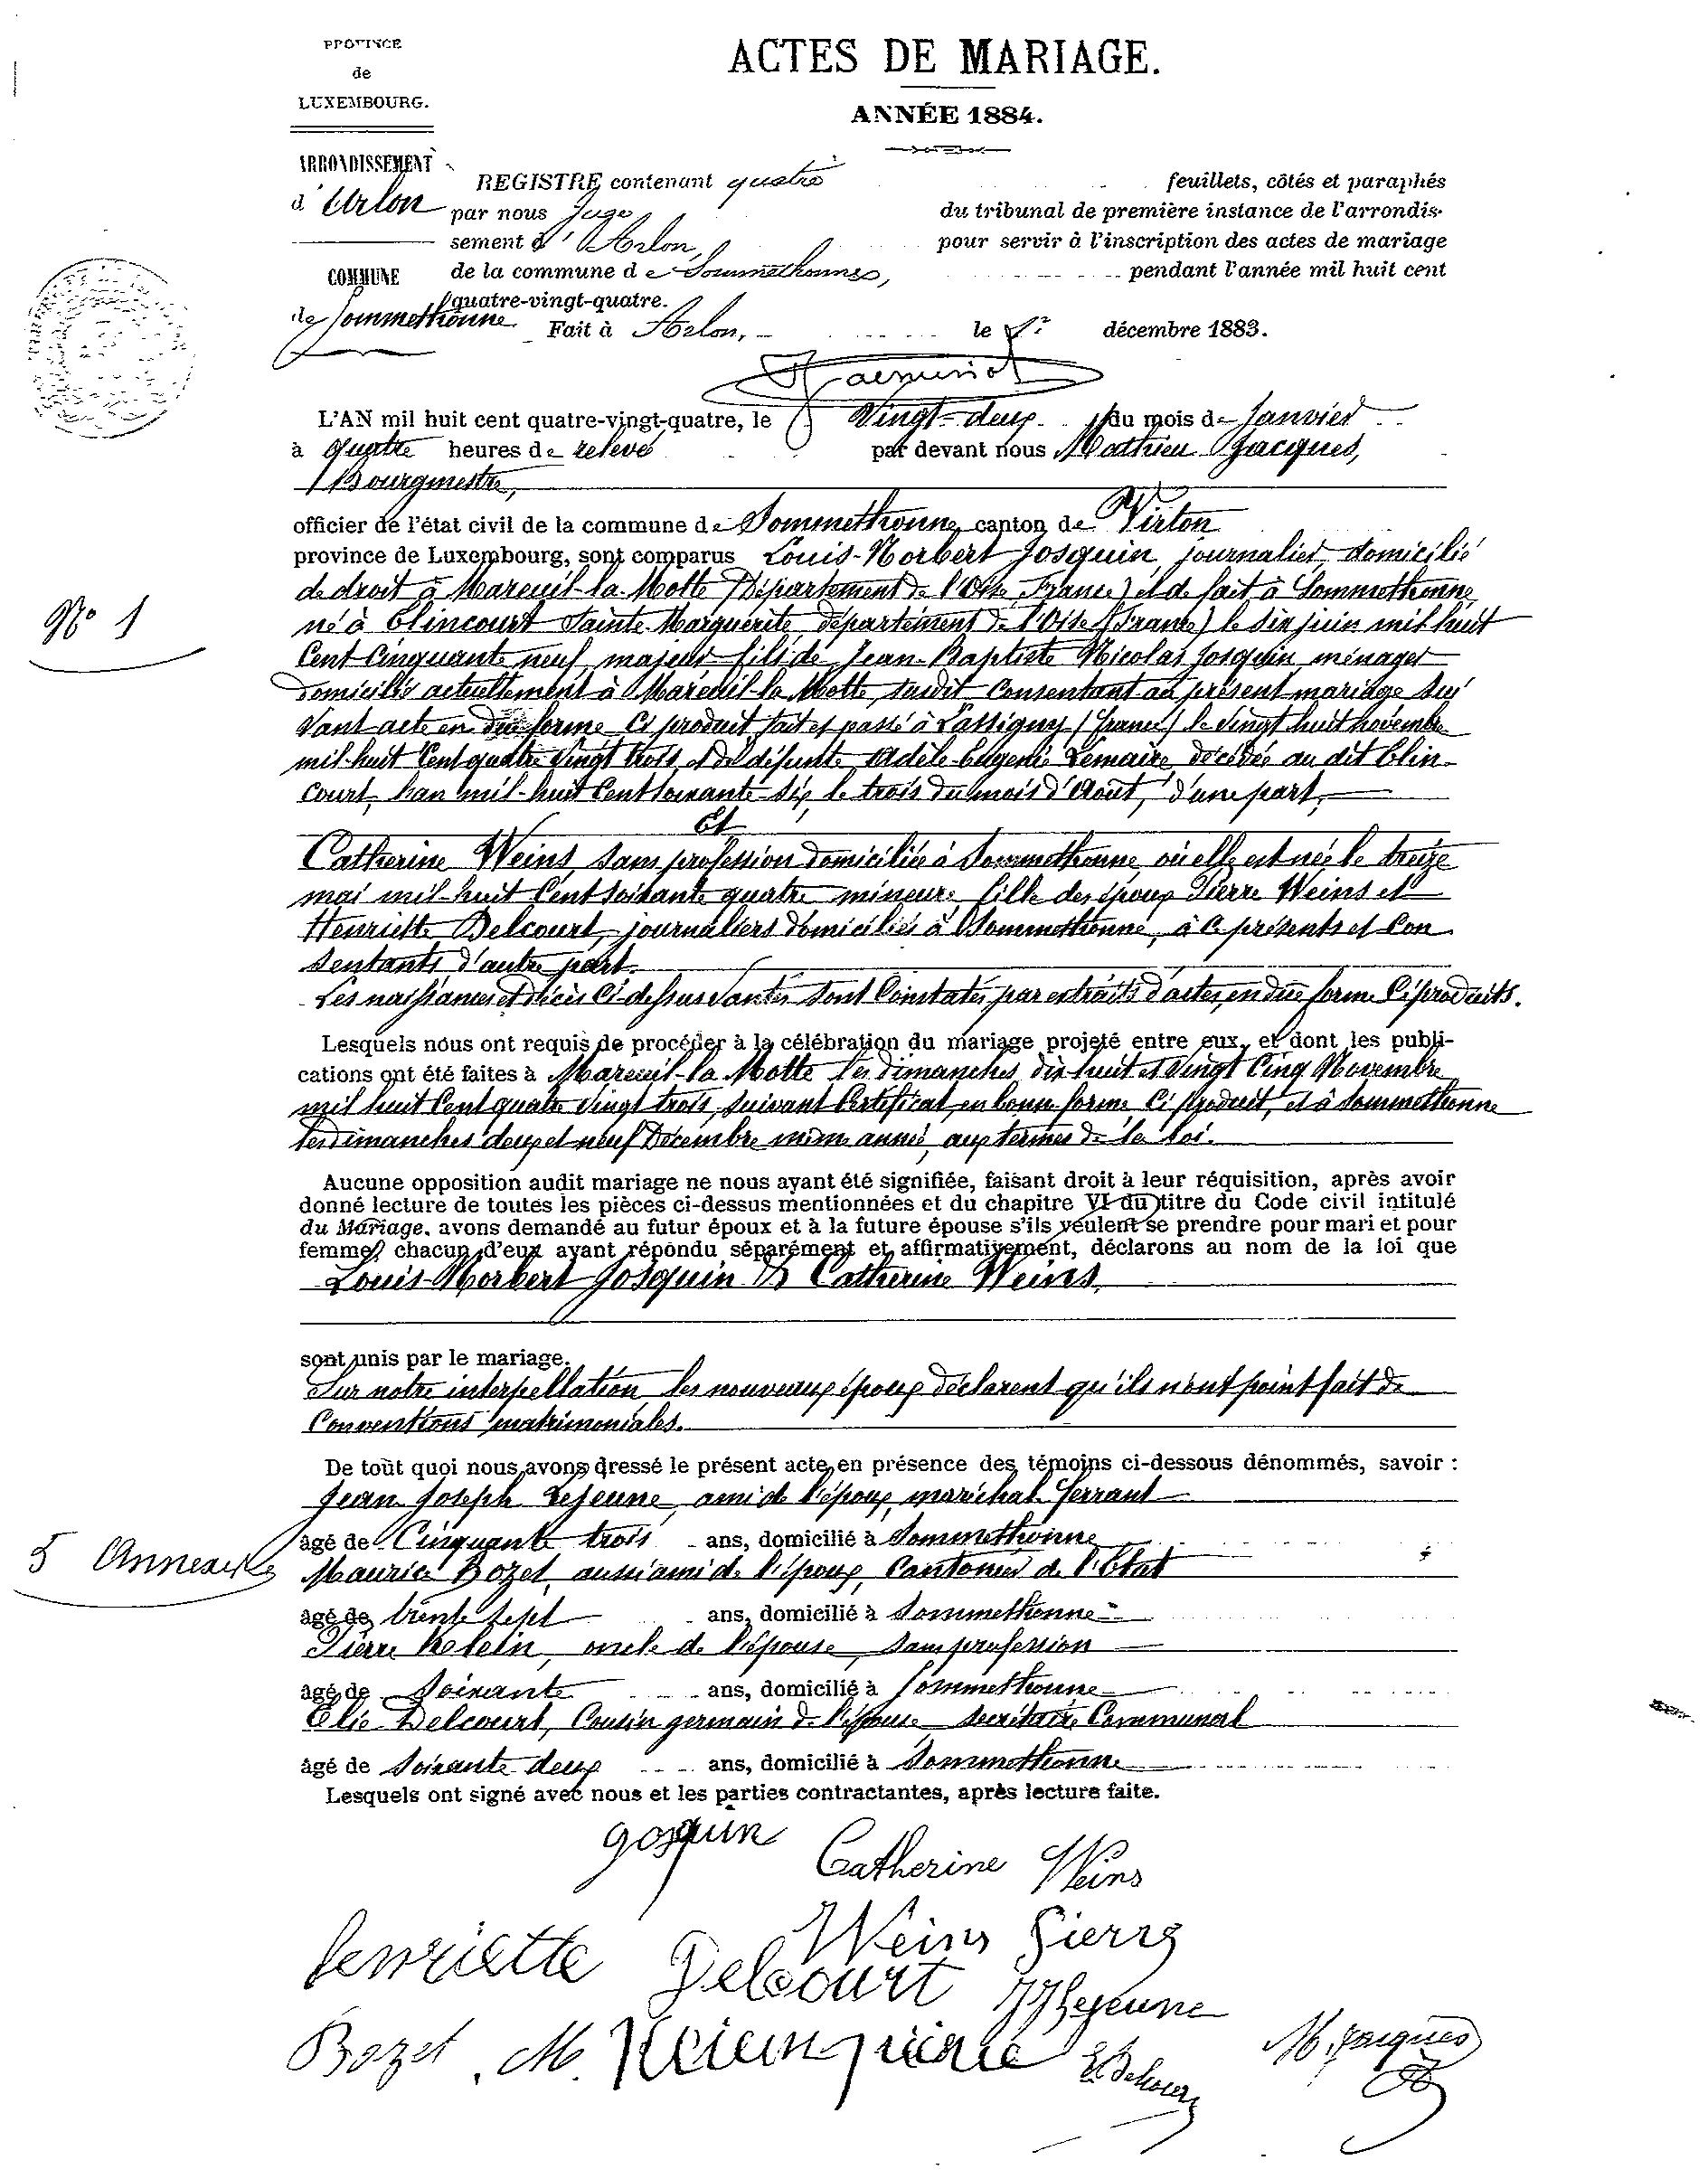 PROVINCE
de
LUXEMBOURG.
ARRONDISSEMENT
d'Arlon
COMMUNE
de Sommethonne
ACTES DE MARIAGE.
ANNÉE 1884.
REGISTRE contenant quatre feuillets, côtés et paraphés
par nous Juge du tribunal de première instance de l'arrondis-
sement d'Arlon, pour servir à l'inscription des actes de mariage
de la commune de Sommethonne, pendant l'année mil huit cent
quatre-vingt-quatre.
Fait à Arlon, le décembre 1883.
L'AN mil huit cent quatre-vingt-quatre, le Vingt-deux du mois de Janvier
à quatre heures de relevé par devant nous Mathieu Jacques,
Bourgmestre,
officier de l'état civil de la commune de Sommethonne, canton de Virton
province de Luxembourg, sont comparus Louis-Norbert Josquin, journalier, domicilié
N° 1
de droit à Mareuil-la-Motte (Département de l'Oise, France) et de fait à Sommethonne,
né à Elincourt Sainte-Marguerite, département de l'Oise (France) le six juin mil huit
Cent Cinquante neuf, majeur fils de Jean-Baptiste Nicolas Josquin, ménager
domicilié actuellement à Mareuil-la Motte, susdit consentant au présent mariage sui
vant acte en due forme ci produit fait et passé à Lassigny (France) le vingt huit novembre
mil-huit Cent quatre vingt trois, et de défunte Adèle-Eugenie Lemaire, décédée au dit Elin-
court, l'an mil-huit Cent soixante-six, le trois du mois d'Août, d'une part,
Et
Catherine Weins, sans profession domiciliée à Sommethonne, où elle est née le treize
mai mil-huit Cent soixante quatre mineure, fille des époux Pierre Weins et
Henriette Delcourt, journaliers domiciliés à Sommethonne, à ce présents et Con
sentants d'autre part.
Les naissances et décès ci-dessus sont Constatés par extraits d'actes, en due forme ci produits.
Lesquels nous ont requis de procéder à la célébration du mariage projeté entre eux, et dont les publi-
cations ont été faites à Mareuil-la Motte les dimanches, dix huit et vingt Cinq Novembre
mil huit Cent quatre vingt trois, suivant Certificat en bonne forme, ci produit, et à Sommethonne
les dimanches deux et neuf Décembre même année, aux termes de la loi.
Aucune opposition audit mariage ne nous ayant été signifiée, faisant droit à leur réquisition, après avoir
donné lecture de toutes les pièces ci-dessus mentionnées et du chapitre VI du titre du Code civil intitulé
du Mariage, avons demandé au futur époux et à la future épouse s'ils veulent se prendre pour mari et pour
femme, chacun d'eux ayant répondu séparément et affirmativement, déclarons au nom de la loi que
Louis-Norbert Josquin & Catherine Weins,
sont unis par le mariage.
Sur notre interpellation, les nouveaux époux déclarent qu'ils n'ont point fait de
Conventions matrimoniales.
De tout quoi nous avons dressé le présent acte en présence des témoins ci-dessous dénommés, savoir :
Jean Joseph Lejeune, ami de l'époux, maréchal-ferrant
âgé de Cinquante trois ans, domicilié à Sommethonne
5 Annexes
Maurice Bozet, aussi ami de l'époux, Cantonnier de l'Etat
âgé de trente sept ans, domicilié à Sommethonne
Pierre oncle de l'épouse, sans profession
âgé de Soixante ans, domicilié à Sommethonne
Elie Delcourt, Cousin germain de l'épouse secrétaire Communal
âgé de Soixante deux ans, domicilié à Sommethonne
Lesquels ont signé avec nous et les parties contractantes, après lecture faite.
gosquin
Catherine Weins
Weins Pierre
henriette Delcourt
JJ Lejeune
Bozet. M.
E Delcour
M. Jacques